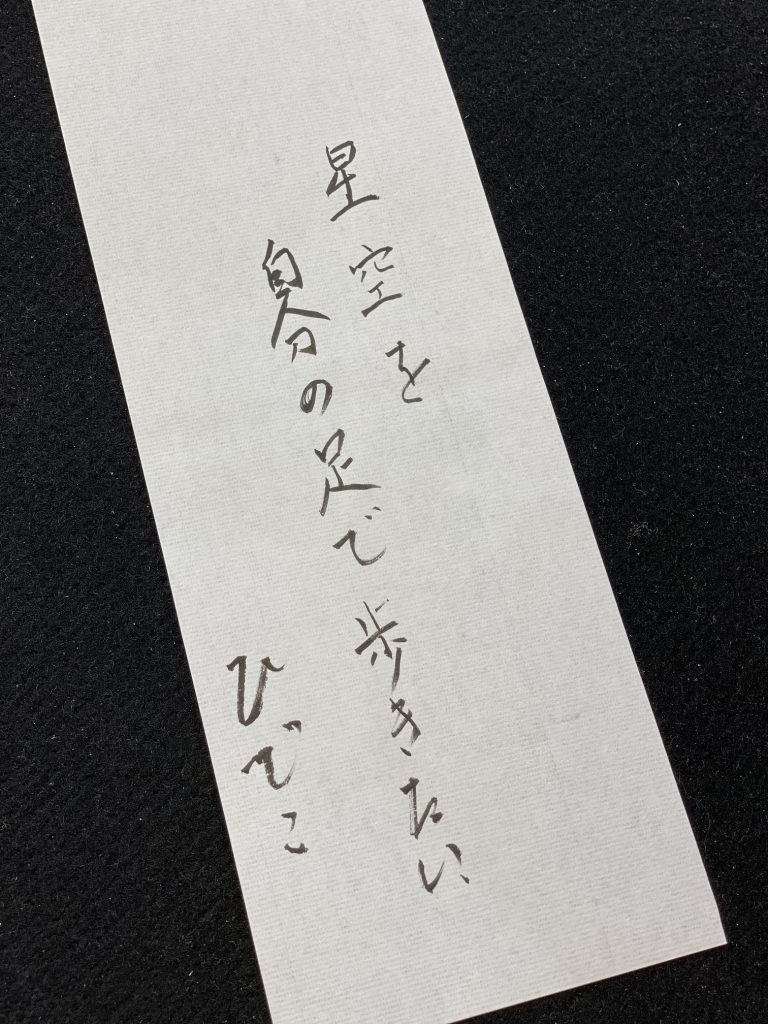 星空を
自分の足で歩きたい
ひでこ